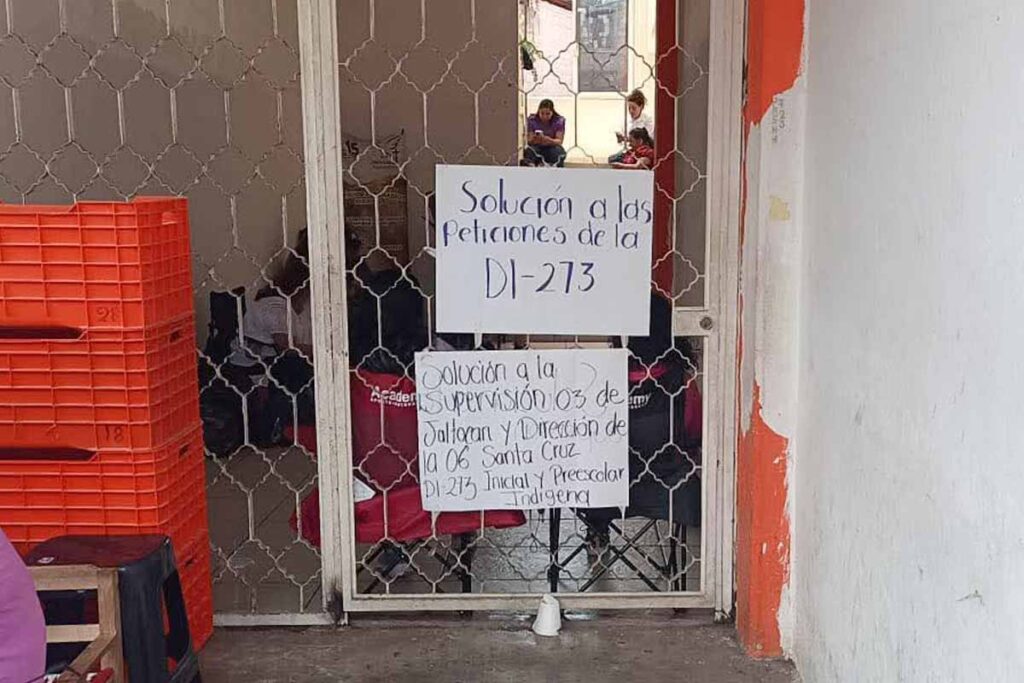 Solución a las
Peticiones de la
DI-273
Solución a la
Supervisión 03 de
Jaltocan y Dirección de
la 06 Santa Cruz
DI-273 Inicial y Preescolar
Indígena
Academy
28
18